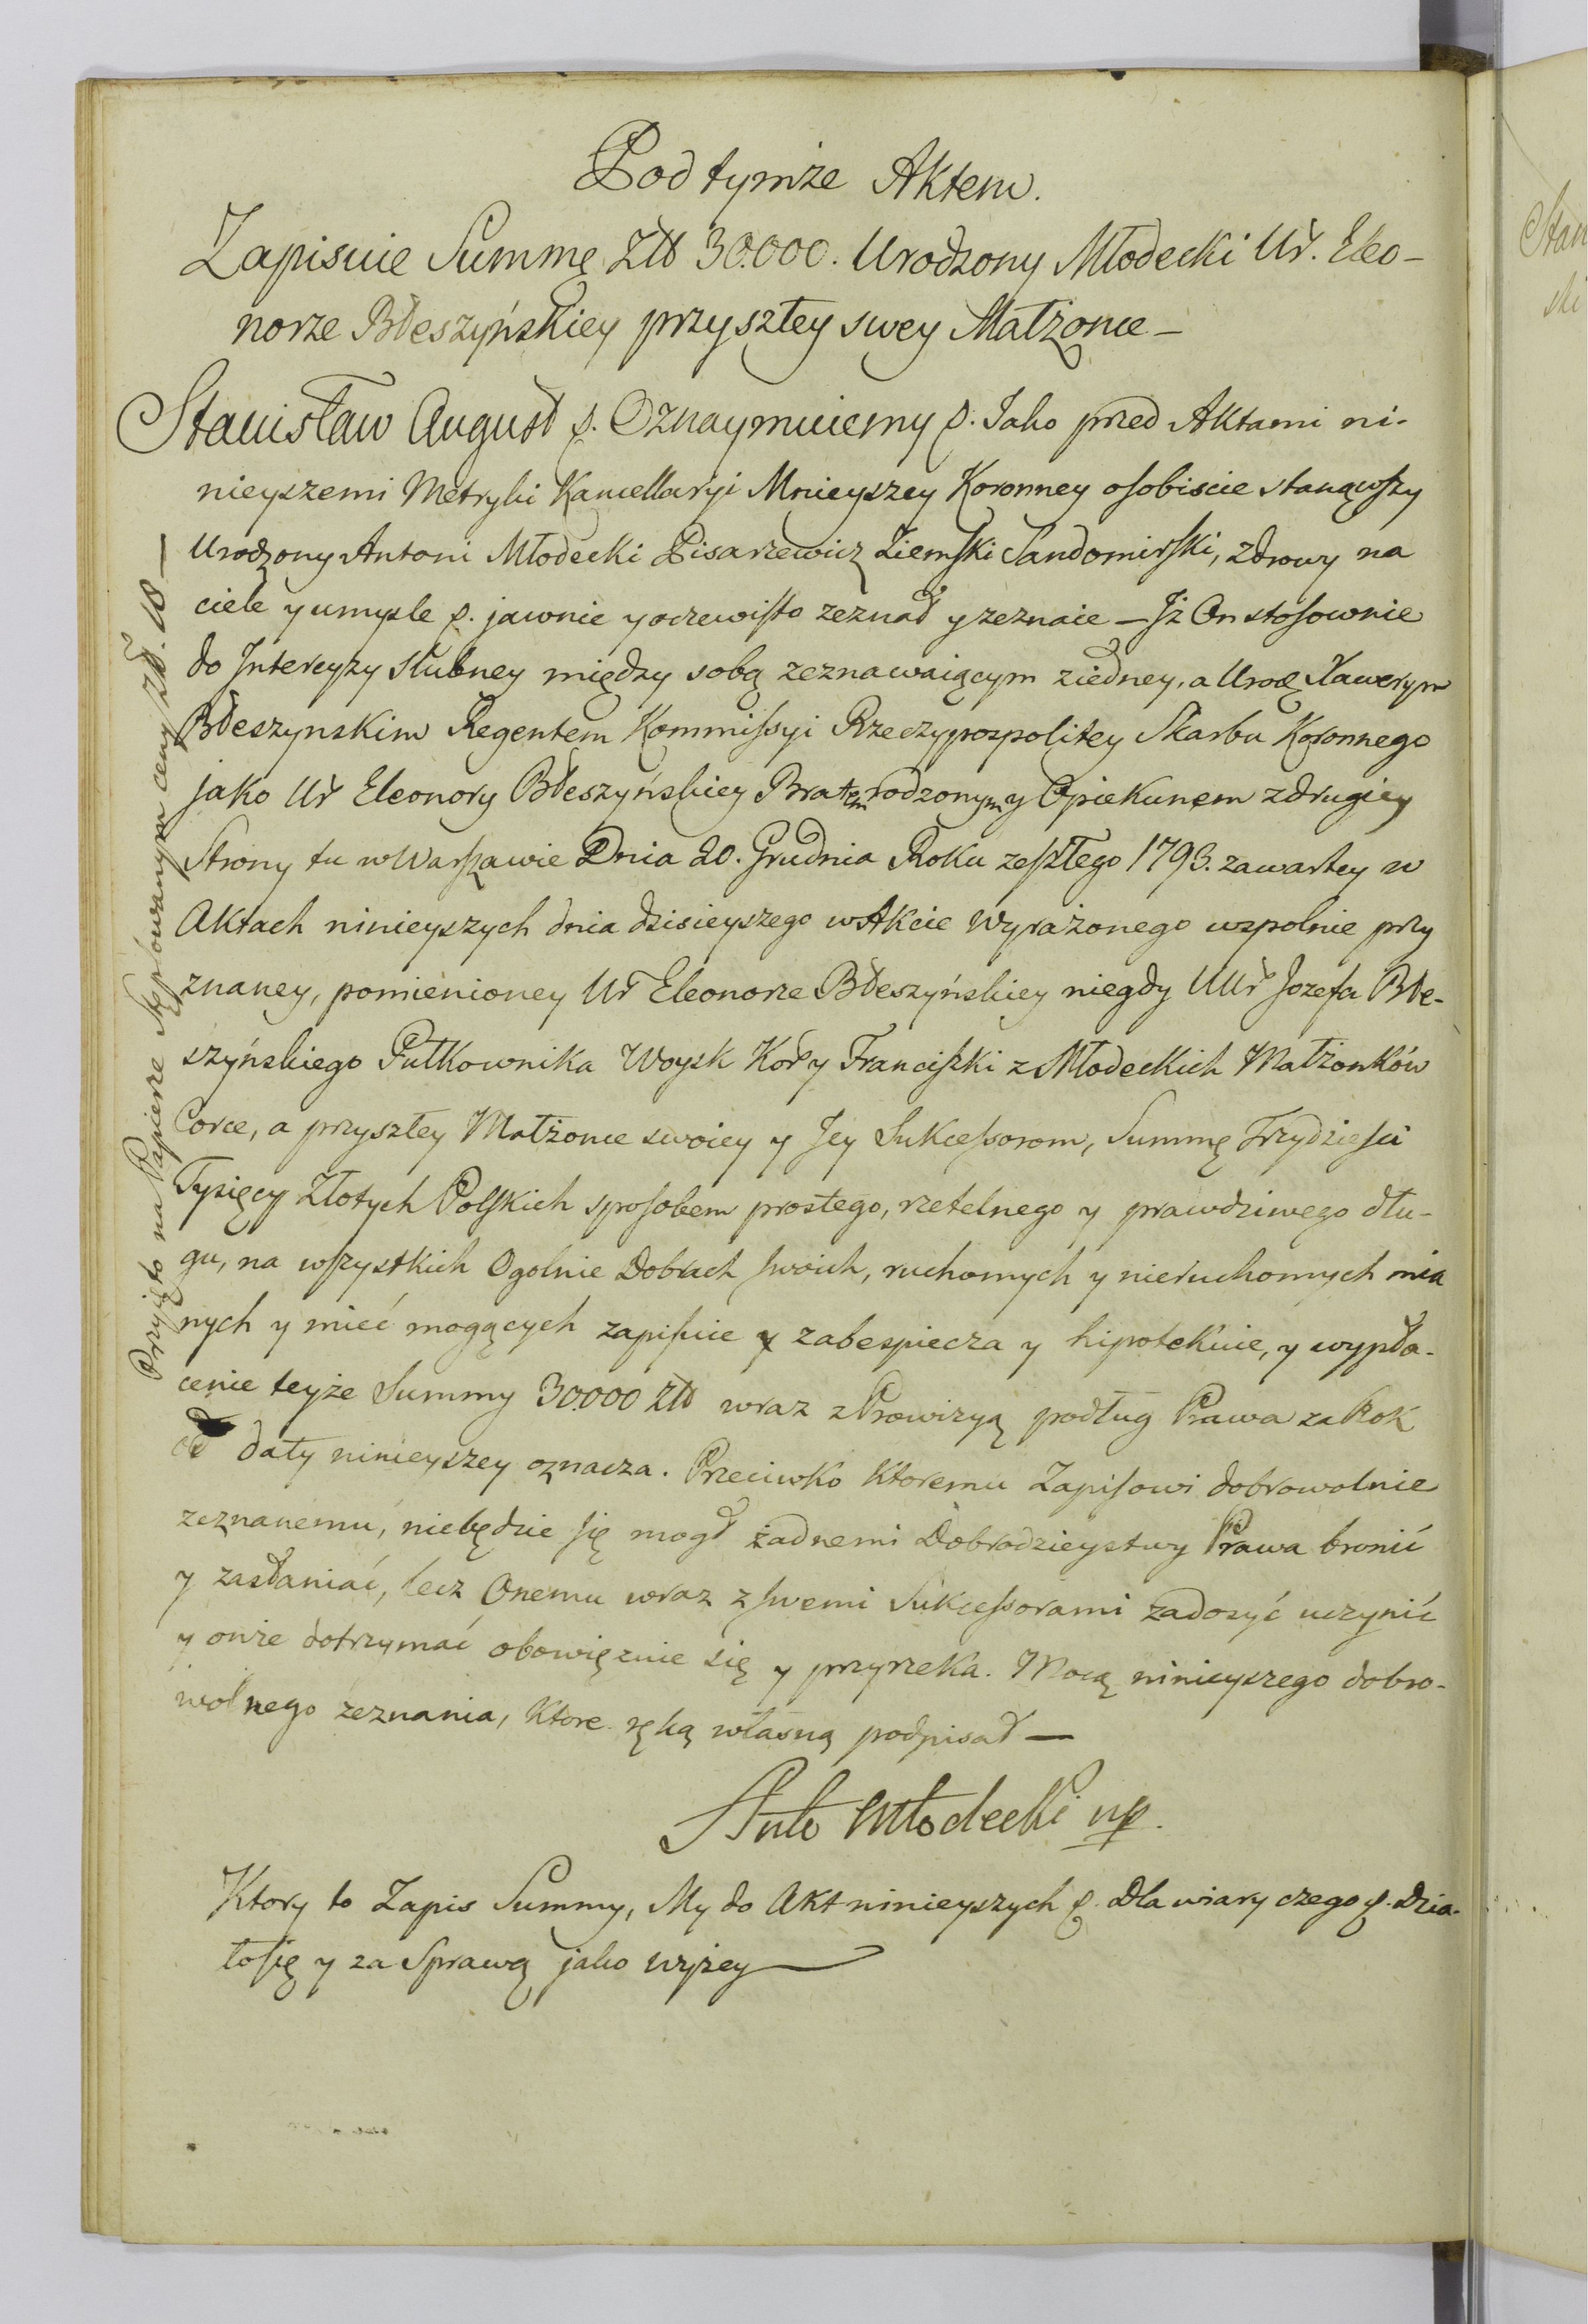 Pod tymże Aktem.
Zapisuie Summę Złł 30.000. Urodzony Młodecki Ur. Eleo-
norze Błeszyńskiey przyszłey swey Małżonce —
Stanisław August p. Oznaymuiemy p. Jako przed Aktami ni-
nieyszemi Metryki Kancellaryi Mnieyszey Koronney osobiscie stanąwszy
Urodzony Antoni Młodecki Pisarzewicz Ziemski Sandomirski, zdrowy na
ciele y umysle p. jawnie y oczewisto zeznał y zeznaie — Jż On stosownie
do Jntercyzy slubney między sobą zeznawaiącym z iedney, a Urod. Xawerym
Błeszynskim Regentem Kommissyi Rzeczypospolitey Skarbu Koronnego
jako Ur Eleonory Błeszyńskiey Bratem rodzonym y Opiekunem z drugiey
Strony tu w Warszawie Dnia 20. Grudnia Roku zeszłego 1793. zawartey w
Aktach ninieyszych dnia dzisieyszego w Akcie wyrażonego wspolnie przy
znaney, pomienioney Ur Eleonorze Błeszyńskiey niegdy UUr Jozefa Błe-
szyńskiego Pułkownika Woysk Kor y Franciszki z Młodeckich Małżonków
Corce, a przyszłey Małżonce swoiey y Jey Sukcessorom, Summę Trzydziesci
Tysięcy Złotych Polskich sposobem prostego, rzetelnego y prawdziwego dłu-
gu, na wszystkich Ogolnie Dobrach swoich, ruchomych y nieruchomych mia
nych y mieć mogących zapisuie y zabespiecza y hipotekuie, y wypła-
cenie teyże Summy 30000 złł wraz z Prowizyą podług Prawa za Rok
od daty ninieyszey oznacza. Przeciwko ktoremu Zapisowi dobrowolnie
zeznanemu, niebędzie się mogł żadnemi Dobrodzieystwy Prawa bronić
y zasłaniać, lecz Onemu wraz z swemi Sukcessorami zadosyć uczynić
y onże dotrzymać obowięzuie się y przyrzeka. Mocą ninieyszego dobro-
wolnego zeznania, ktore ręką własną podpisał —
Anto Młodecki mp.
Ktory to Zapis Summy, My do Akt ninieyszych p. Dla wiary czego p. Dzia-
ło się y za Sprawą jako wyżey
Przyięto na Papierze Stęplowanym ceny złł.